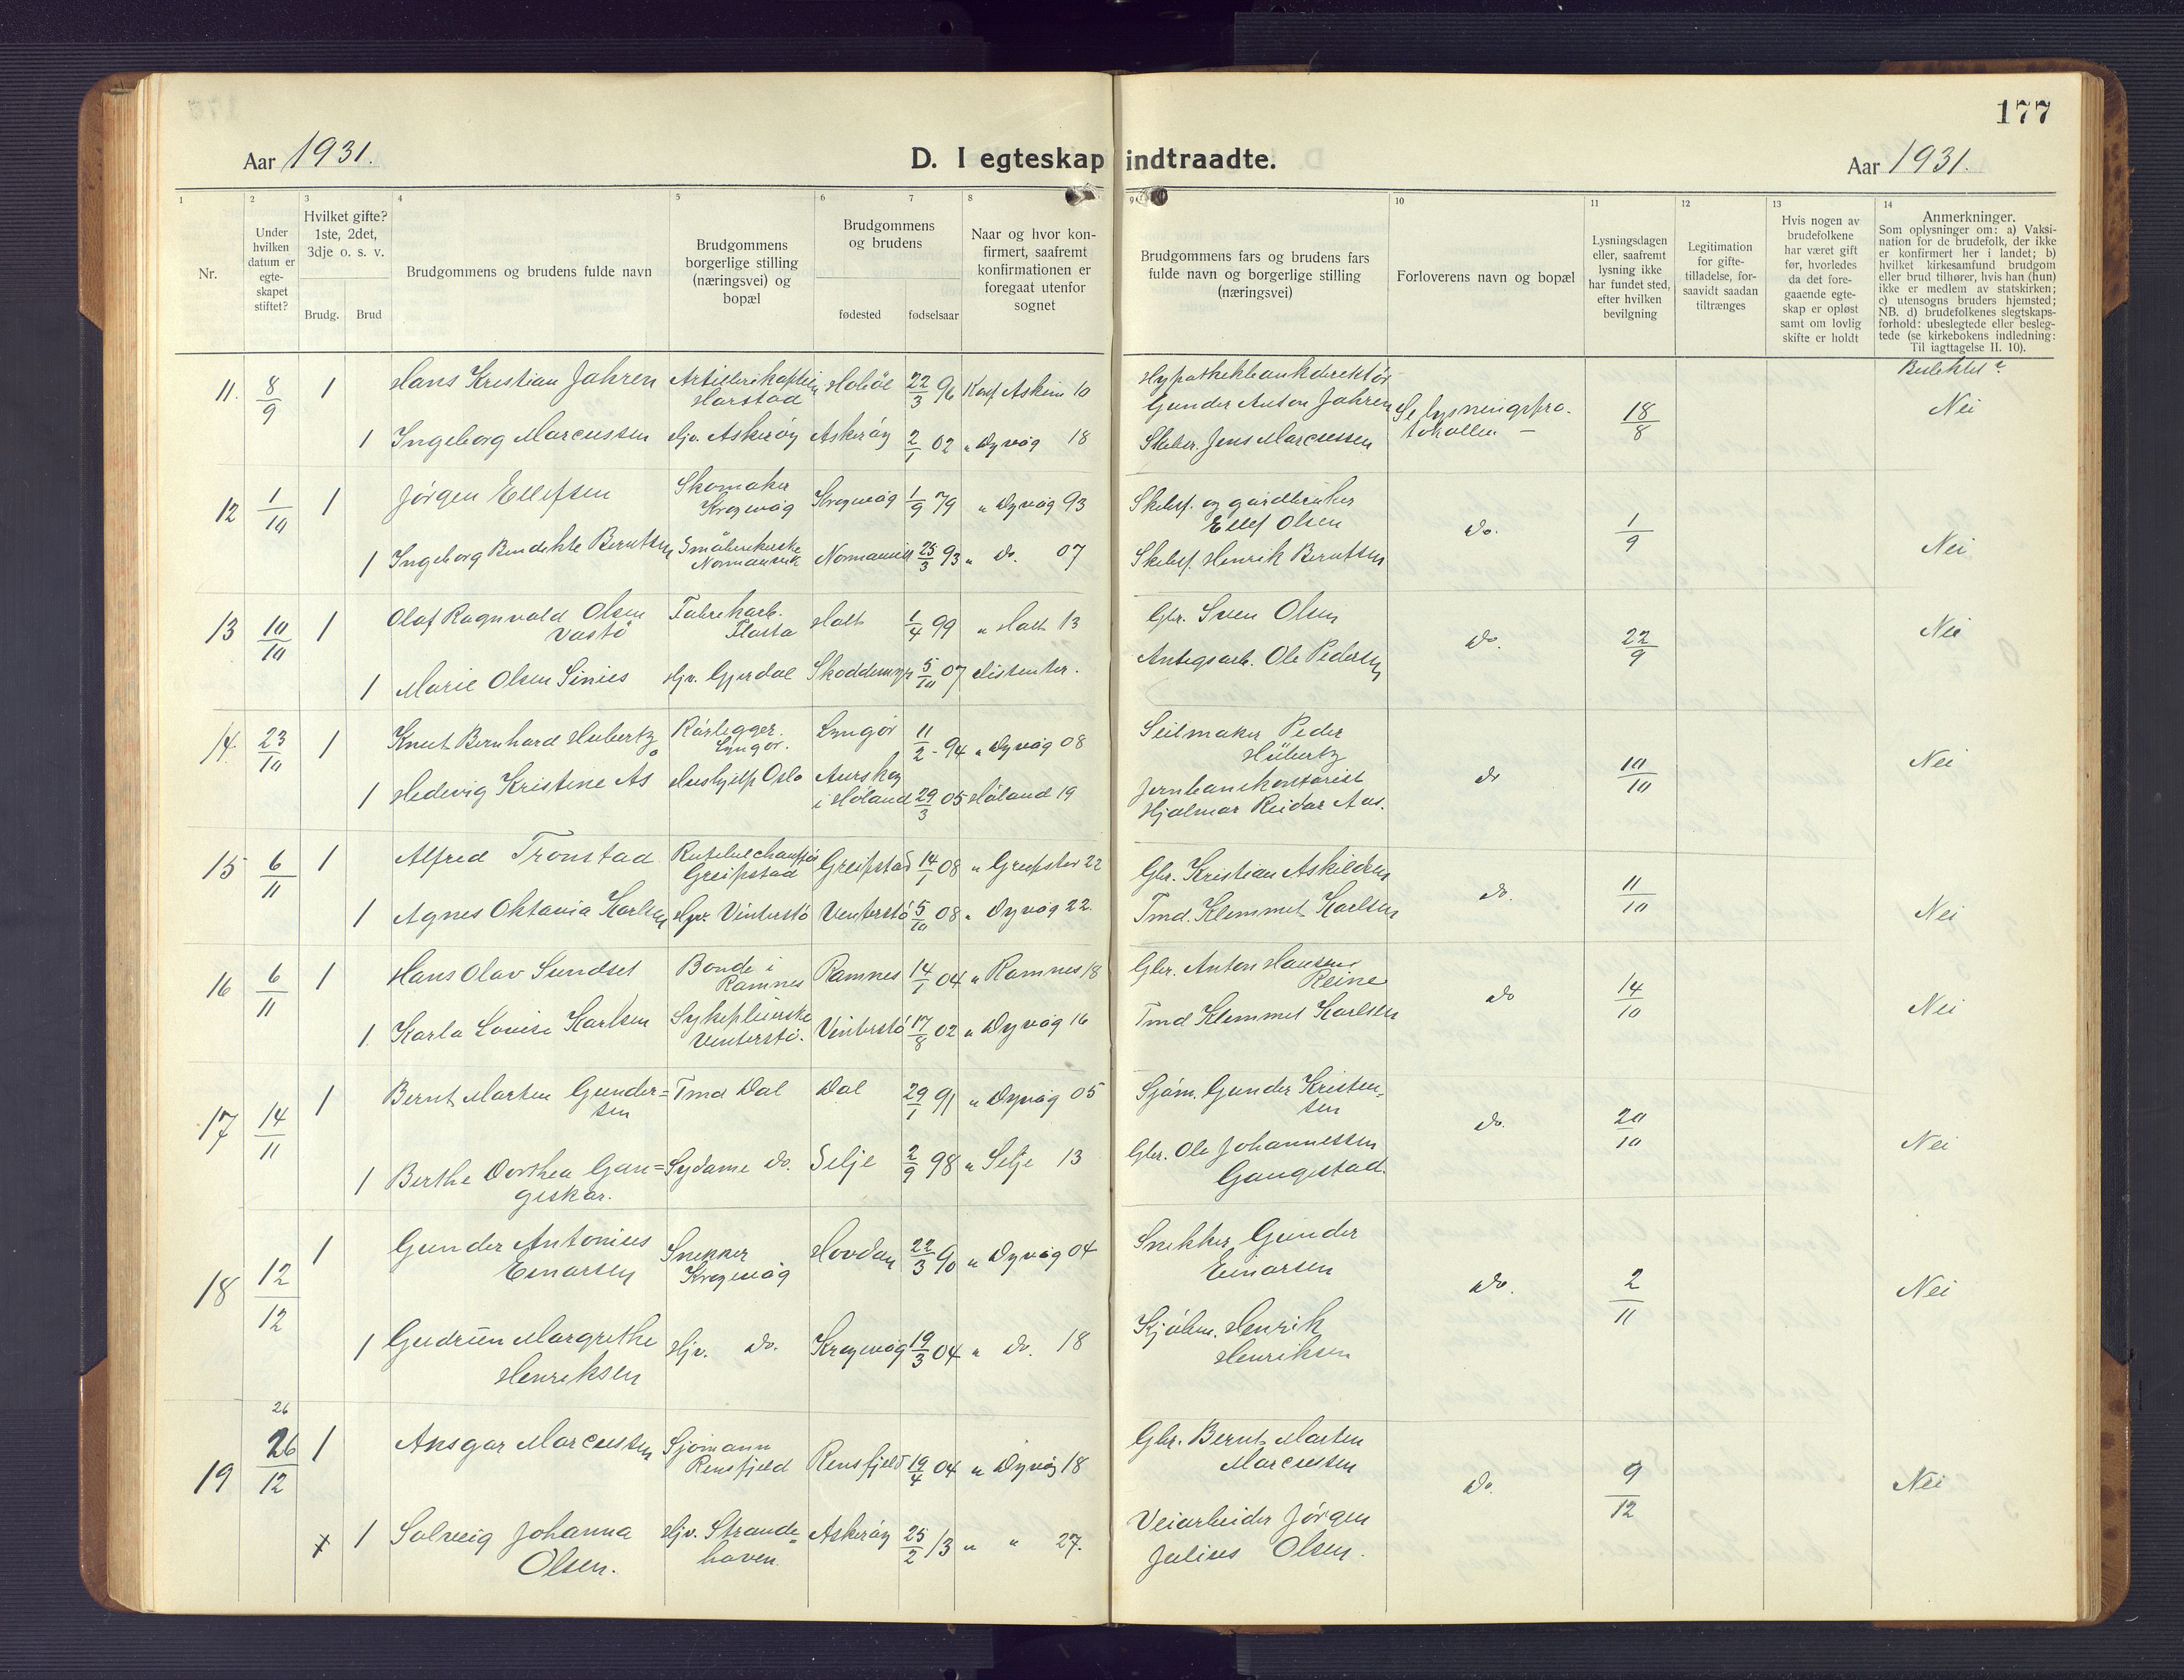 177
Aar 1931.
D. I egteskap indtraadte.
Aar 1931.
1
2 Under hvilken datum er egteskapet stiftet?
3 Hvilket gifte? 1ste, 2det, 3dje o. s. v.
Nr.
Brudg. Brud
4 Brudgommens og brudens fulde navn
5 Brudgommens borgerlige stilling (næringsvei) og bopæl
6 7 Brudgommens og brudens
fødested fødselsaar
8 Naar og hvor konfirmert, saafremt konfirmationen er foregaat utenfor sognet
9 Brudgommens fars og brudens fars fulde navn og borgerlige stilling (næringsvei)
10 Forloverens navn og bopæl
11 Lysningsdagen eller, saafremt lysning ikke har fundet sted, efter hvilken bevilgning
12 Legitimation for giftetilladelse, forsaavidt saadan tiltrænges
13 Hvis nogen av brudefolkene har været gift før, hvorledes da det foregaaende egteskap er opløst samt om lovlig skifte er holdt
14 Anmerkninger.
Som oplysninger om: a) Vaksination for de brudefolk, der ikke er konfirmert her i landet; b) hvilket kirkesamfund brudgom eller brud tilhører, hvis han (hun) ikke er medlem av statskirken; c) utensogns bruders hjemsted; NB. d) brudefolkenes slegtskapsforhold: ubeslegtede eller beslegtede (se kirkebokens indledning: Til iagttagelse II. 10).
Beslektet?
11. 8/9 1 Hans Kristian Jahren Artillerikaptein Harstad Hobøl 22/3 96 Konf Askim 10 Hypothekbankdirektør Gunder Anton Jahren Se lysningspro-tokollen 18/8 Nei
1 Ingeborg Marcussen Hjv. Askerøy Askerøy 2/1 02 " Dyvåg 18 Skibsr. Jens Marcussen
12 1/10 1 Jørgen Ellefsen Skomaker Krogevåg Krogevåg 1/9 79 " Dyvåg 93 Skibsf. og gårdbruker Ellef Olsen do. 1/9 Nei
1 Ingeborg Bendikte Berntsen Småbrukerske Normannvik Normannvik 25/3 93 " do. 07 Skibsf. Henrik Berntsen
13 10/10 1 Olaf Ragnvald Olsen Vastø Fabrikarb. Flosta Holt 1/4 99 " Holt 13 Gbr. Sven Olsen do. 22/9 Nei
1 Marie Olsen Sinies Hjv. Gjerdal Skoddemyr 5/10 07 dissenter. Anlegsarb. Ole Pedersen
14. 23/10 1 Knut Bernhard Hubertz Rørlegger. Lyngør. Lyngør 11/2 - 94 " Dyvåg 08 Seilmaker Peder Hübertz do 10/10 Nei
1 Hedevig Kristine Ås Hushjelp Oslo Aurskog i Høland 29/3 05 Høland 19 Jernbanekontorist Hjalmar Reidar Aas.
15 6/11 1 Alfred Tronstad Rutebilchauffør Greipstad Greipstad 14/1 08 " Greipstad 22 Gbr. Kristian Askildsen do. 11/10 Nei
1 Agnes Oktavia Karlsen Hjv. Vinterstø Vinterstø 5/10 08 " Dyvåg 22. Tmd. Klemmet Karlsen
16 6/11 1 Hans Olav Sundset Bonde i Ramnes Ramnes 14/1 04 " Ramnes 18 Gbr. Anton Hansen Reine do 14/10 Nei
1. Karla Lovise Karlsen Sykepleierske Vinterstø. Vinterstø 17/8 02 " Dyvåg 16 Tmd Klemmet Karlsen
17 14/11 1 Bernt Marten Gunder=sen Tmd Dal Dal 29/1 91 " Dyvåg 05 Sjøm. Gunder Kristen-sen do. 20/10 Nei
1 Berthe Dorthea Gan=geskar. Sydame do. Selje 2/9 98 " Selje 13 Gbr. Ole Johannessen Gangestad.
18 12/12 1 Gunder Antonius Einarsen Snekker Krogevåg Hovdan 22/3 90 " Dyvåg 04 Snekker Gunder Einarsen do. 2/11 Nei
1 Gudrun Margrethe Henriksen Hjv. do. Krogevåg 19/3 04 " do. 18 Kjøbm. Henrik Henriksen
26
19 26/12 1 Ansgar Marcussen Sjømann Rensfjeld Rensfjeld 19/4 04 " Dyvåg 18 Gbr. Bernt Marten Marcussen do. 9/12 Nei
x 1 Solveig Johanna Olsen. Hjv. Strande=haven Askerøy 25/2 13 " " 27. Veiarbeider Jørgen Julius Olsen.